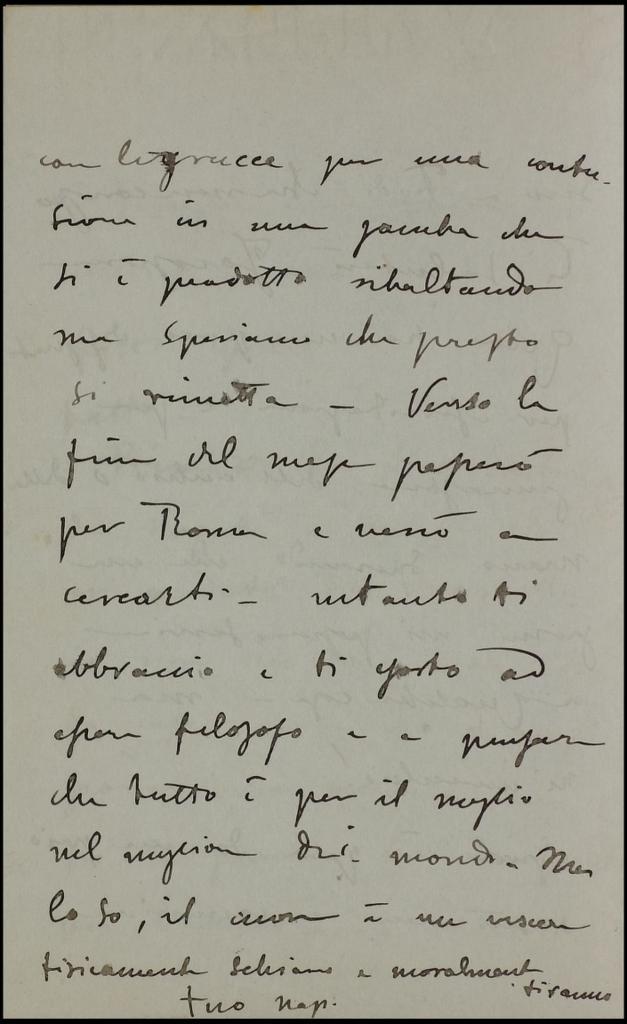 con le grucce per una contu-
sione in una gamba che
si è prodotto ribaltando
ma speriamo che presto
si rimetta – Verso la
fine del mese passerò
per Roma e verrò a
cercarti – intanto ti
abbraccio e ti esorto ad
essere filosofo e a pensare
che tutto è per il meglio
nel migliore dei mondi. Ma
lo so, il cuore è un viscere
fisicamente schiavo e moralmente
tiranno
tuo